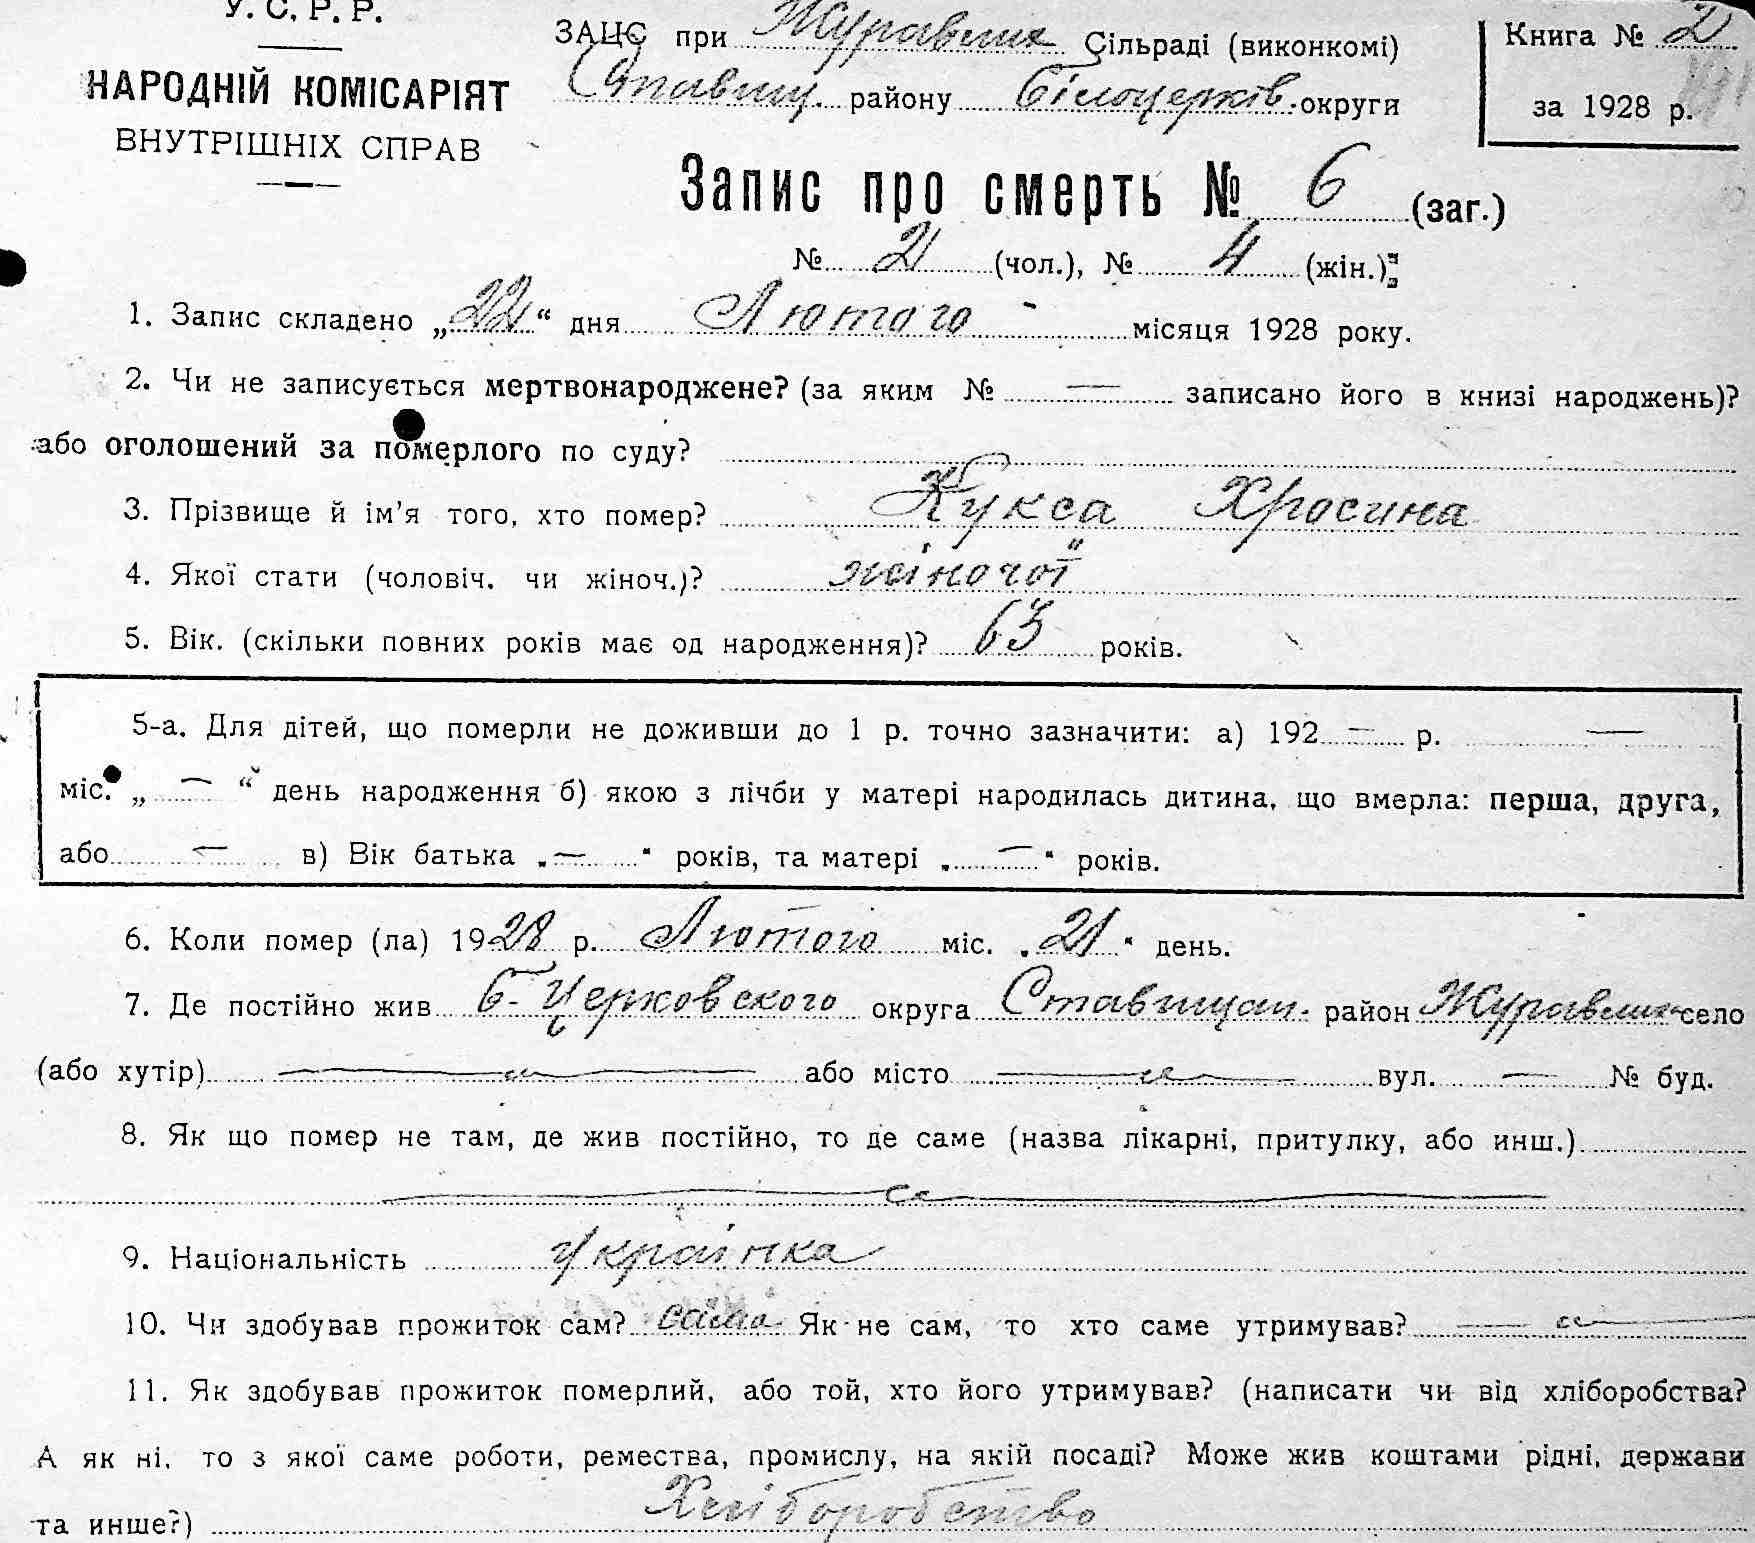 У. С. Р. Р.
НАРОДНІЙ КОМІСАРІЯТ
ВНУТРІШНІХ СПРАВ
ЗАЦС при Журавлих Сільраді (виконкомі)
Ставищ. району Білоцерків. округи
Книга № 2
за 1928 р.
Запис про смерть № 6 (заг.)
№ 2 (чол.), № 4 (жін.);
1. Запис складено „22“ дня Лютого місяця 1928 року.
2. Чи не записується мертвонароджене? (за яким № — записано його в книзі народжень)?
або оголошений за померлого по суду?
3. Прізвище й ім'я того, хто помер? Кукса Хросина
4. Якої стати (чоловіч. чи жіноч.)? жіночої
5. Вік. (скільки повних років має од народження)? 63 років.
5-а. Для дітей, що померли не доживши до 1 р. точно зазначити: а) 192 — р. —
міс. „ — “ день народження б) якою з лічби у матері народилась дитина, що вмерла: перша, друга,
або — в) Вік батька „ — “ років, та матері „ — “ років.
6. Коли помер (ла) 1928 р. Лютого міс. „21“ день.
7. Де постійно жив Б-Церковского округа Ставищан. район Журавлих село
(або хутір) — або місто — вул. — № буд.
8. Як що помер не там, де жив постійно, то де саме (назва лікарні, притулку, або инш.)
9. Національність Українка
10. Чи здобував прожиток сам? сама Як не сам, то хто саме утримував? —
11. Як здобував прожиток померлий, або той, хто його утримував? (написати чи від хліборобства?
А як ні, то з якої саме роботи, ремества, промислу, на якій посаді? Може жив коштами рідні, держави
та инше?) Хліборобство